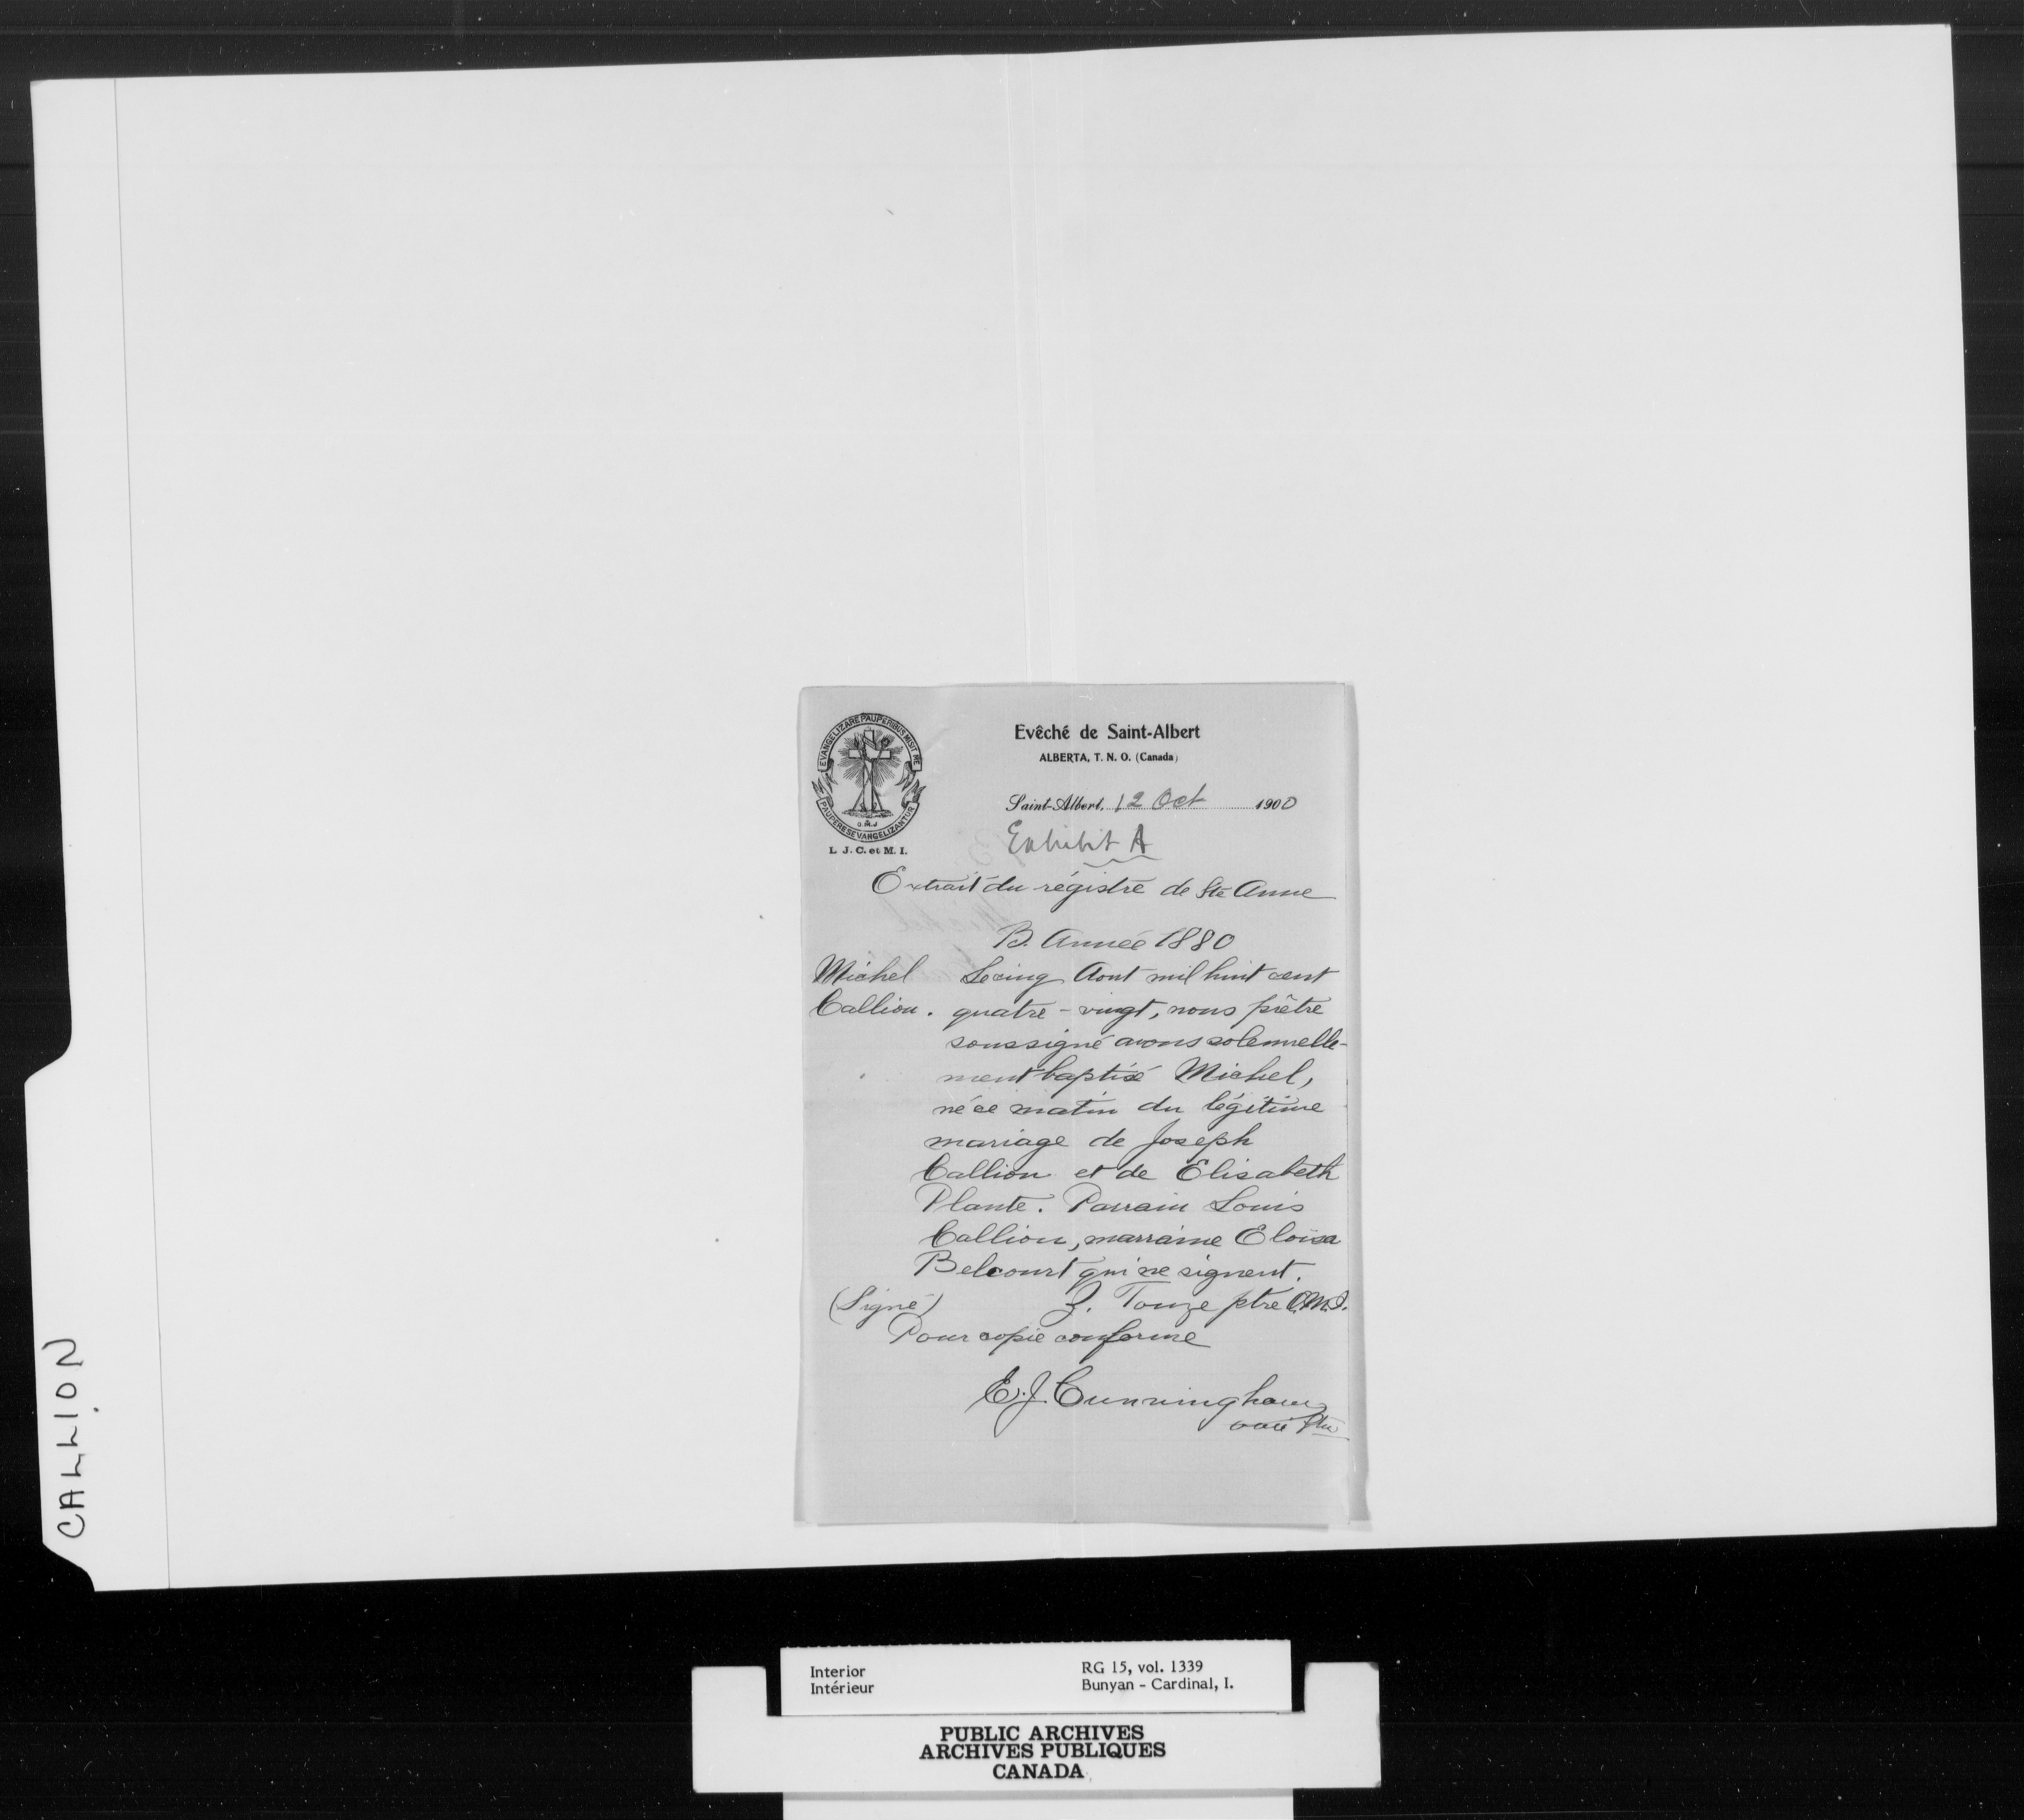 CALLION
EVANGELIZARE PAUPERIBUS MISIT ME
PAUPERES EVANGELIZANTUR
O.M.J
L. J. C. et M. I.
Evêché de Saint-Albert
ALBERTA, T. N. O. (Canada)
Saint-Albert, 12 Oct 1900
Exhibit A
Extrait du régistre de Ste Anne
B. Année 1880
Michel Le cinq Aout mil huit cent
Callion. quatre-vingt, nous prêtre
soussigné avons solennelle-
ment baptisé Michel,
né ce matin du légitime
mariage de Joseph
Callion et de Elisabeth
Plante. Parrain Louis
Callion, marraine Eloïsa
Belcourt qui ne signent.
(Signé) Z. Touze ptre O.M.I.
Pour copie conforme
E. J. Cunningham
Ptre
Interior RG 15, vol. 1339
Intérieur Bunyan - Cardinal, I.
PUBLIC ARCHIVES
ARCHIVES PUBLIQUES
CANADA